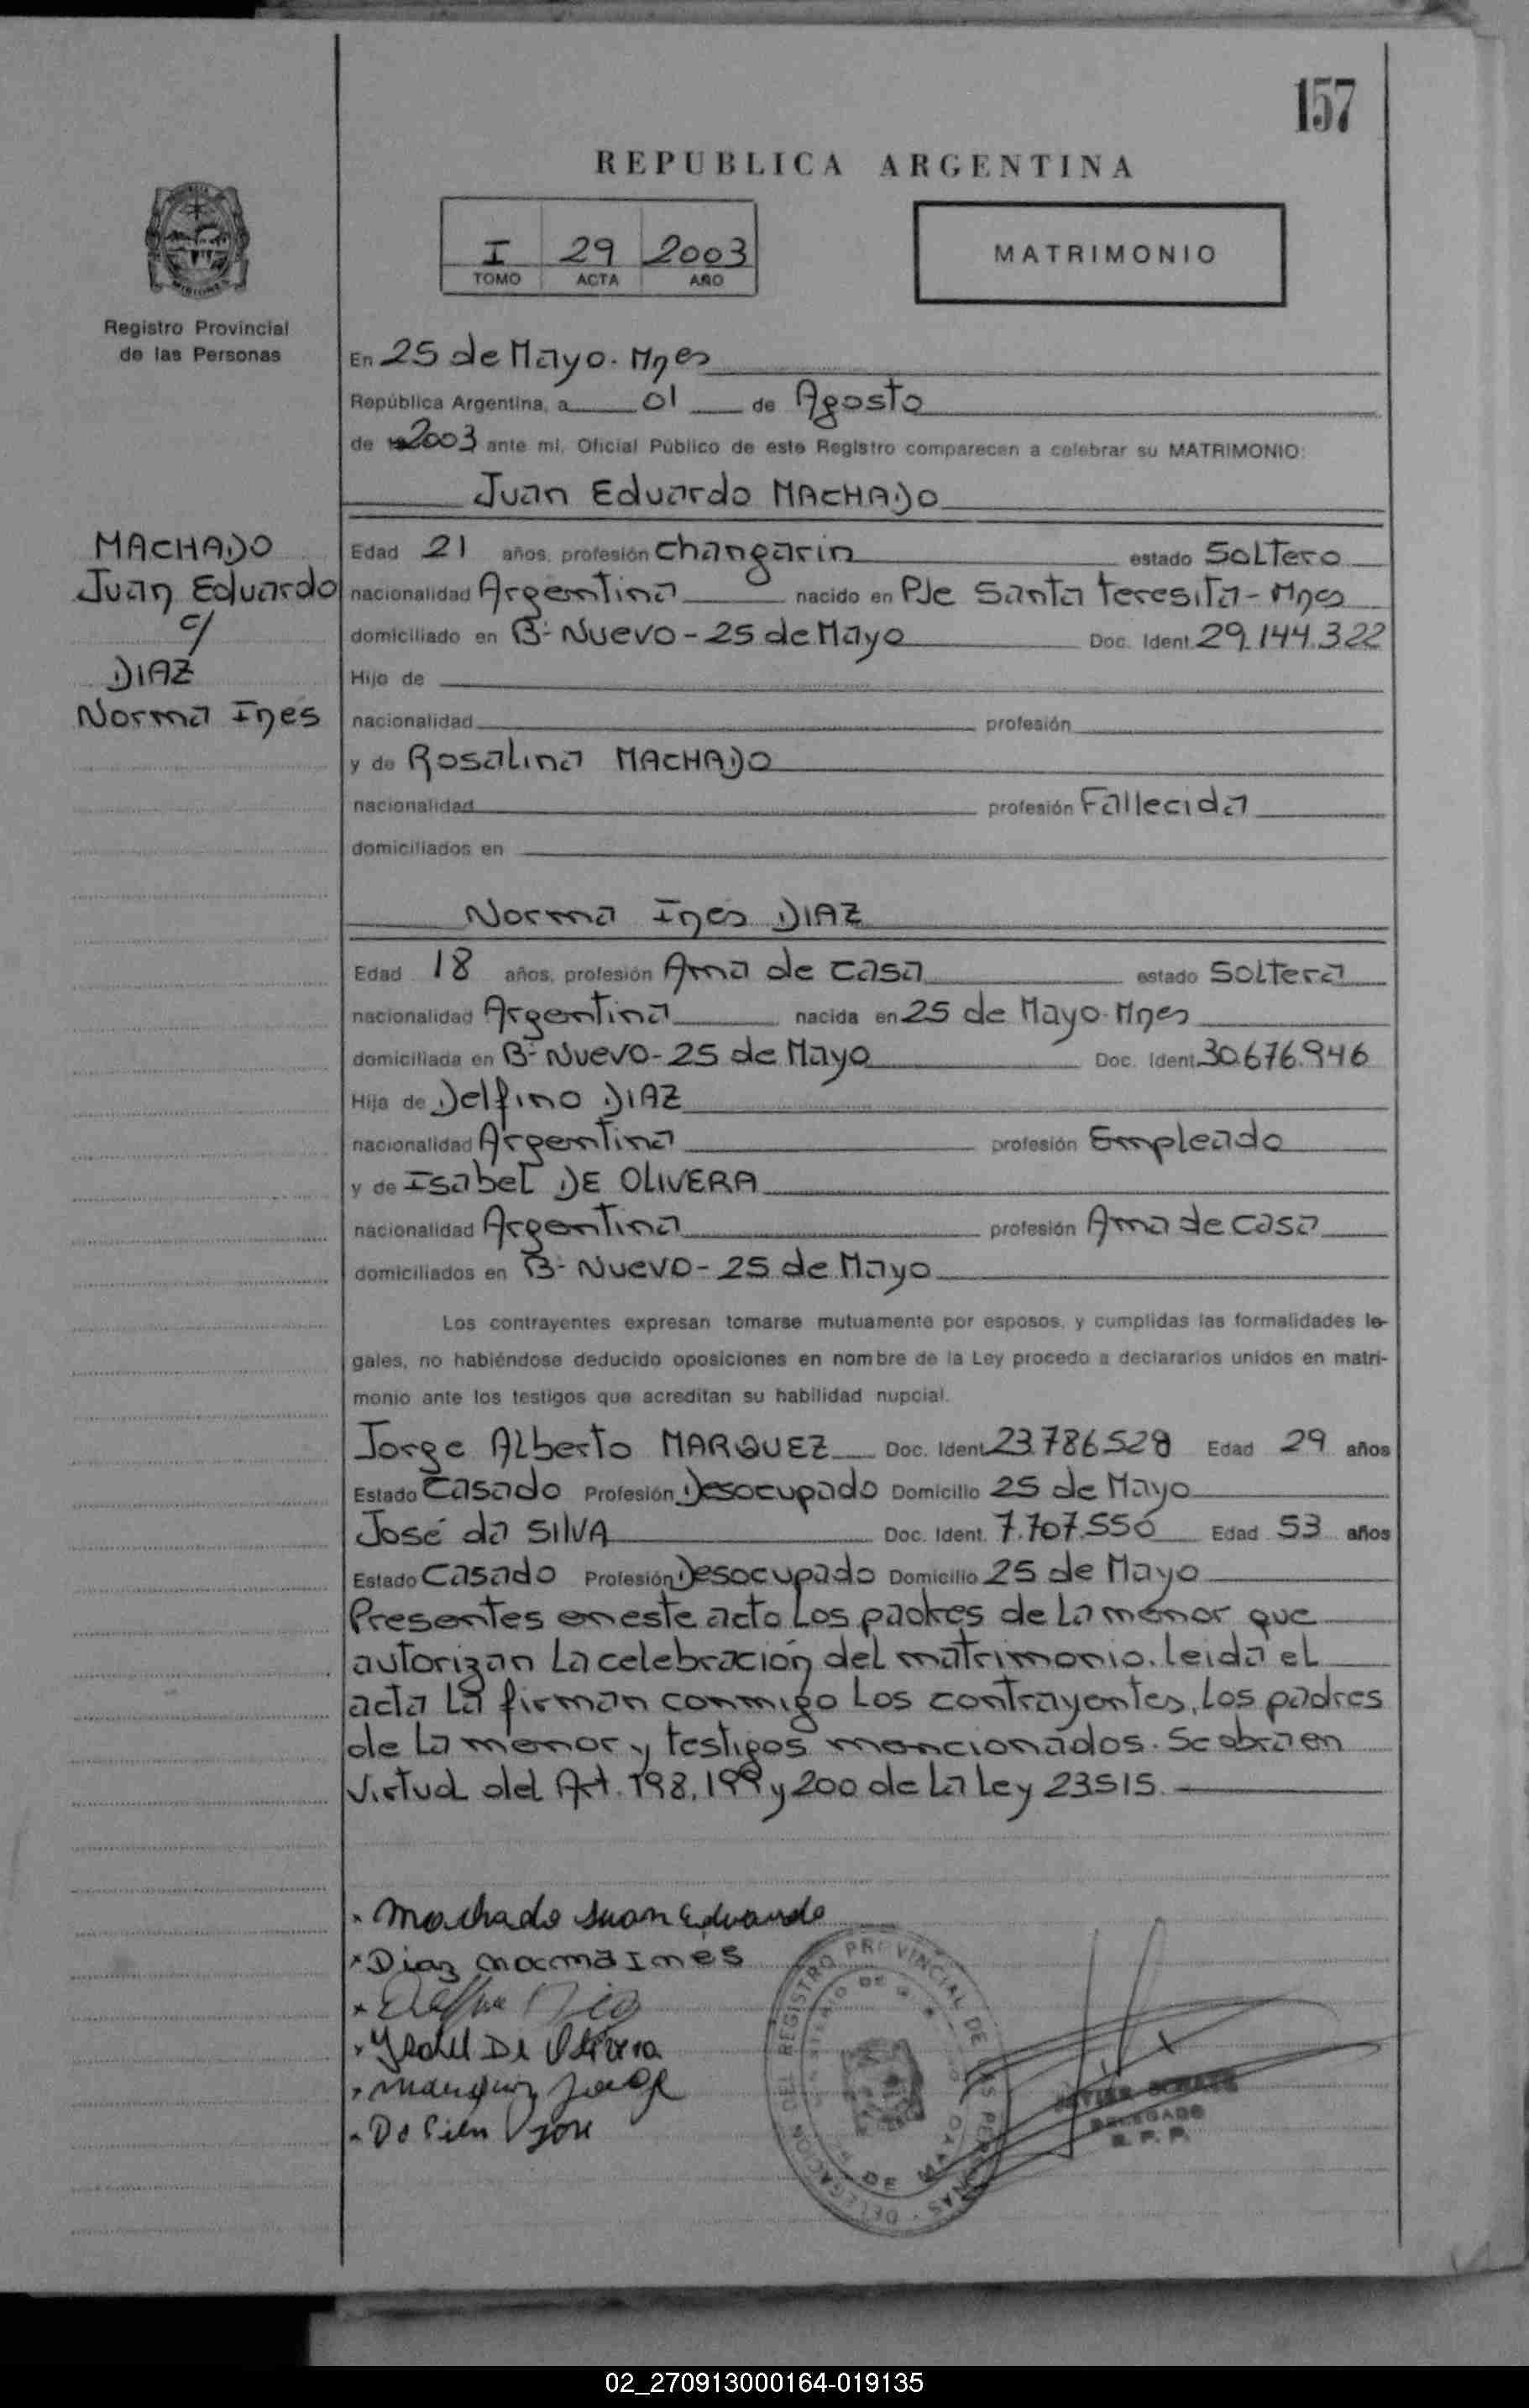 157
REPUBLICA ARGENTINA
I 29 2003
TOMO ACTA AÑO
MATRIMONIO
Registro Provincial
de las Personas
En 25 de Mayo. Mnes
República Argentina, a 01 de Agosto
de 2003 ante mí, Oficial Público de este Registro comparecen a celebrar su MATRIMONIO:
Juan Eduardo MACHADO
MACHADO
Juan Eduardo
c/
DIAZ
Norma Ines
Edad 21 años, profesión changarin estado Soltero
nacionalidad Argentina nacido en Pje Santa Teresita - Mnes
domiciliado en Bº Nuevo - 25 de Mayo Doc. Ident. 29.144.322
Hijo de
nacionalidad profesión
y de Rosalina MACHADO
nacionalidad profesión Fallecida
domiciliados en
Norma Ines DIAZ
Edad 18 años, profesión Ama de casa estado Soltera
nacionalidad Argentina nacida en 25 de Mayo. Mnes
domiciliada en Bº Nuevo - 25 de Mayo Doc. Ident. 30.676.946
Hija de Delfino DIAZ
nacionalidad Argentina profesión Empleado
y de Isabel DE OLIVERA
nacionalidad Argentina profesión Ama de casa
domiciliados en Bº Nuevo - 25 de Mayo
Los contrayentes expresan tomarse mutuamente por esposos, y cumplidas las formalidades le-
gales, no habiéndose deducido oposiciones en nombre de la Ley procedo a declararlos unidos en matri-
monio ante los testigos que acreditan su habilidad nupcial.
Jorge Alberto MARQUEZ Doc. Ident. 23.786.528 Edad 29 años
Estado Casado Profesión Desocupado Domicilio 25 de Mayo
José da SILVA Doc. Ident. 7.707.556 Edad 53 años
Estado Casado Profesión Desocupado Domicilio 25 de Mayo
Presentes en este acto los padres de la menor que
autorizan la celebración del matrimonio. leida el
acta la firman conmigo los contrayentes, los padres
de la menor y testigos mencionados. Se obra en
virtud del Art. 198, 199 y 200 de la ley 23515.
Machado Juan Eduardo
Diaz Norma Ines
Ysabel De Olivera
Marquez Jorge
DELEGACION DEL REGISTRO PROVINCIAL DE LAS PERSONAS
DELEGADO
R. P. P.
02_270913000164-019135